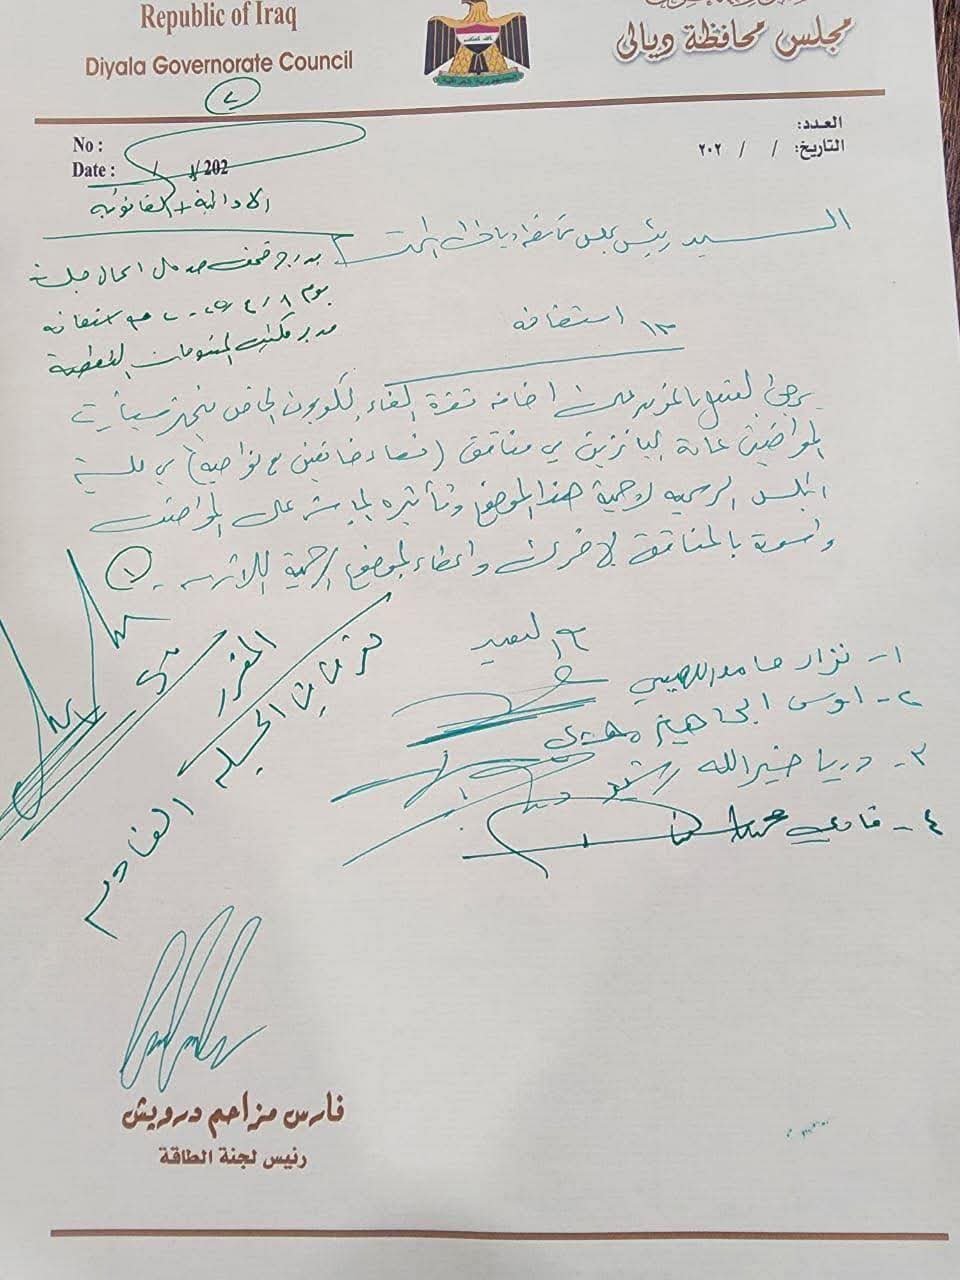 Republic of Iraq
Diyala Governorate Council
مجلس محافظة ديالى
No :
Date : / / 202
العدد:
التاريخ: / / ٢٠٢
الادارية + القانونية
السيد رئيس مجلس محافظة ديالى المحترم
يدرج ضمن جدول اعمال جلسة
يوم ٨ / ٤ /
مدير المنتوجات النفطية
م/ استضافة
يرجى التفضل بالموافقة على اضافة فقرة الغاء الكوبون الخاص بتجهيز سيارات
المواطنين بمادة البانزين في مناطق (قضاء خانقين مع نواحيه) في جلسة
المجلس الرسمية لاهمية هذا الموضوع وتأثيره المباشر على المواطنين
واسوة بالمناطق الاخرى واعطاء الموضوع الاهمية اللازمة .
مع التقدير
١- نزار حامد اللهيبي
٢- اوس ابراهيم مهدي
٣- دريا خيرالله
٤- فارس
المقرر
الجلسة القادمة
فارس مزاحم درويش
رئيس لجنة الطاقة